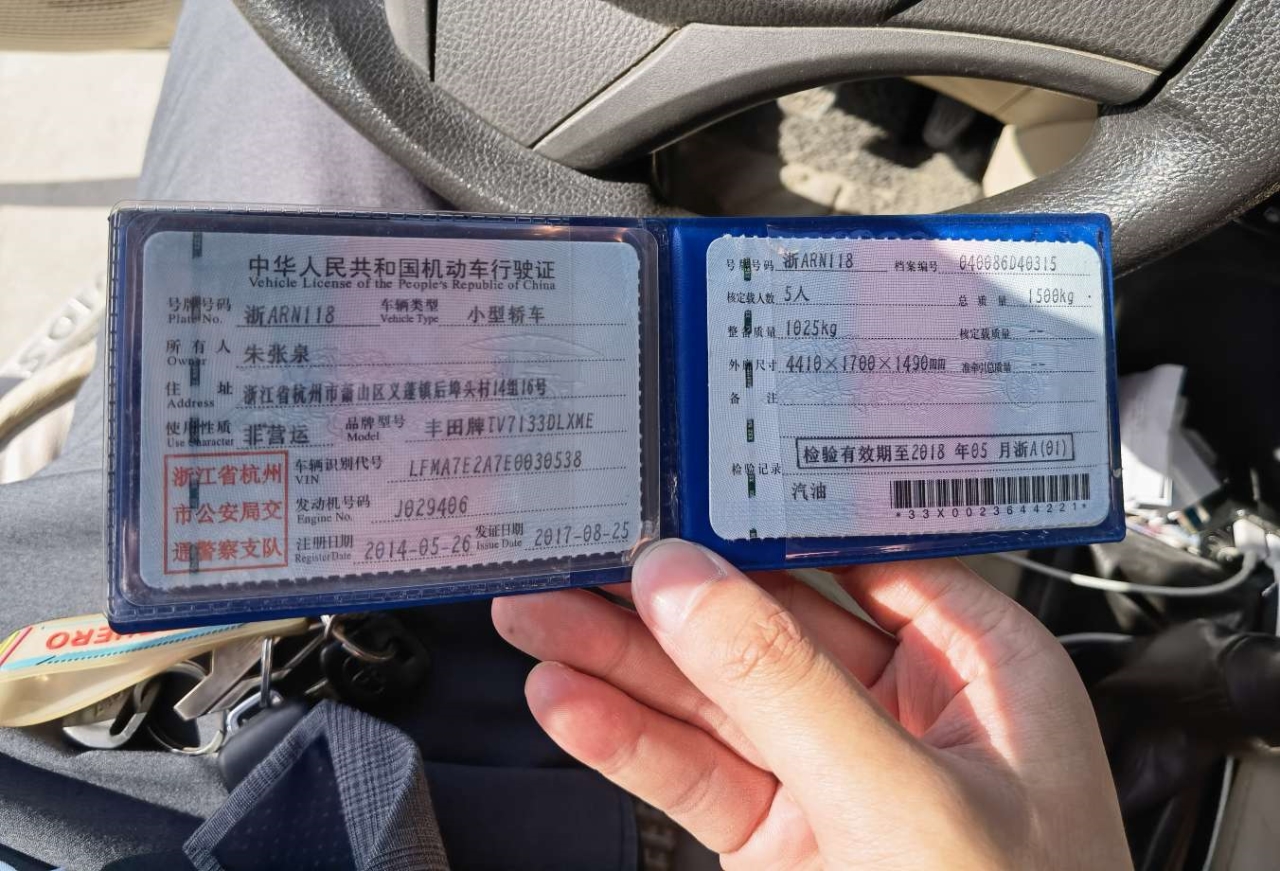 中华人民共和国机动车行驶证
Vehicle License of the People's Republic of China
号牌号码 浙ARN118 车辆类型 小型轿车
Plate No. Vehicle Type
所有人 朱张泉
Owner
住址 浙江省杭州市萧山区义蓬镇后埠头村14组16号
Address
使用性质 非营运 品牌型号 丰田牌TV7133DLXME
Use Character Model
浙江省杭州
市公安局交
通警察支队
车辆识别代号 LFMA7E2A7E0030538
VIN
发动机号码 J029406
Engine No.
注册日期 2014-05-26 发证日期 2017-08-25
Register Date Issue Date
号牌号码 浙ARN118 档案编号 040086D40315
核定载人数 5人 总质量 1500kg
整备质量 1025kg 核定载质量 --
外廓尺寸 4410×1700×1490mm 准牵引总质量 --
备注
检验有效期至2018 年05 月浙A(01)
检验记录
汽油
*33X0023644221*
HERO